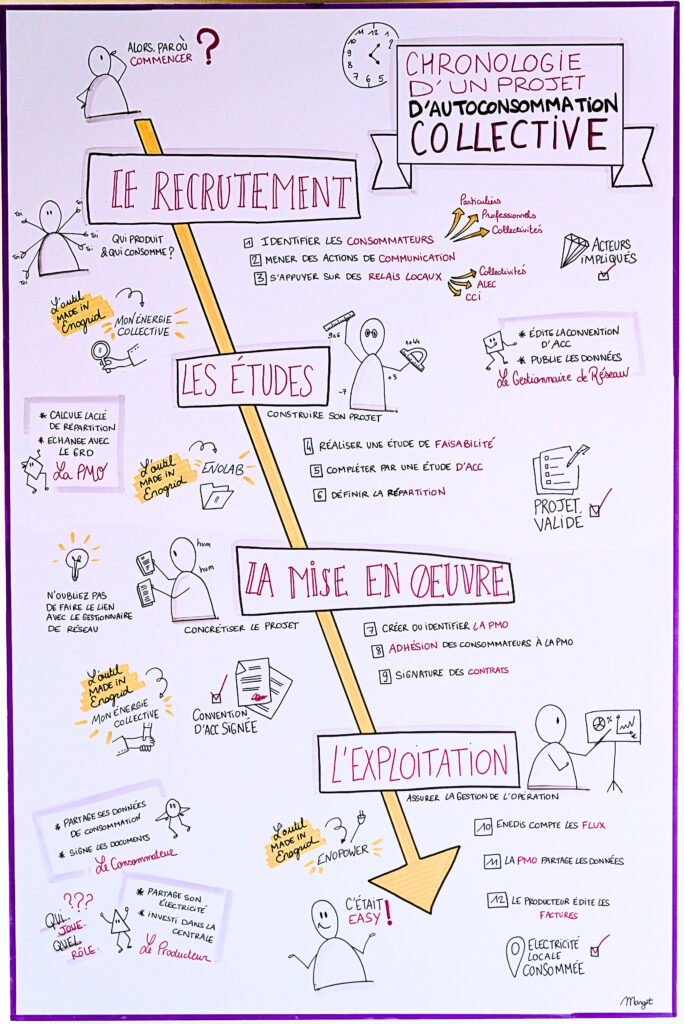 ALORS, PAR OÙ
COMMENCER ?
12
CHRONOLOGIE
D'UN PROJET
D'AUTOCONSOMMATION
COLLECTIVE
LE RECRUTEMENT
QUI PRODUIT
& QUI CONSOMME ?
1 IDENTIFIER LES CONSOMMATEURS
Particuliers
Professionnels
Collectivités
2 MENER DES ACTIONS DE COMMUNICATION
3 S'APPUYER SUR DES RELAIS LOCAUX
Collectivités
ALEC
CCI
ACTEURS
IMPLIQUÉS
L'outil
MADE IN
Enogrid
MON ÉNERGIE
COLLECTIVE
* ÉDITE LA CONVENTION
D'ACC
* PUBLIE LES DONNÉES
Le Gestionnaire de Réseau
LES ÉTUDES
9x6
1+4x
-7
+3
CONSTRUIRE SON PROJET
* CALCULE LA CLÉ
DE RÉPARTITION
* ECHANGE AVEC
LE GRD
La PMO
L'outil
MADE IN
Enogrid
ENOLAB
4 RÉALISER UNE ÉTUDE DE FAISABILITÉ
5 COMPLÉTER PAR UNE ÉTUDE D'ACC
6 DÉFINIR LA RÉPARTITION
PROJET
VALIDÉ
LA MISE EN OEUVRE
hum
hum
N'OUBLIEZ PAS
DE FAIRE LE LIEN
AVEC LE GESTIONNAIRE
DE RÉSEAU
CONCRÉTISER LE PROJET
7 CRÉER OU IDENTIFIER LA PMO
8 ADHÉSION DES CONSOMMATEURS À LA PMO
9 SIGNATURE DES CONTRATS
L'outil
MADE IN
Enogrid
MON ÉNERGIE
COLLECTIVE
CONVENTION
D'ACC SIGNÉE
L'EXPLOITATION
% €
ASSURER LA GESTION DE L'OPÉRATION
* PARTAGE SES DONNÉES
DE CONSOMMATION
* SIGNE LES DOCUMENTS
Le Consommateur
L'outil
MADE IN
Enogrid
ENOPOWER
10 ENEDIS COMPTE LES FLUX
11 LA PMO PARTAGE LES DONNÉES
12 LE PRODUCTEUR ÉDITE LES
FACTURES
???
QUI
JOUE
QUEL
RÔLE
* PARTAGE SON
ÉLECTRICITÉ
* INVESTI DANS LA
CENTRALE
Le Producteur
C'ÉTAIT
EASY !
ELECTRICITÉ
LOCALE
CONSOMMÉE
Margot